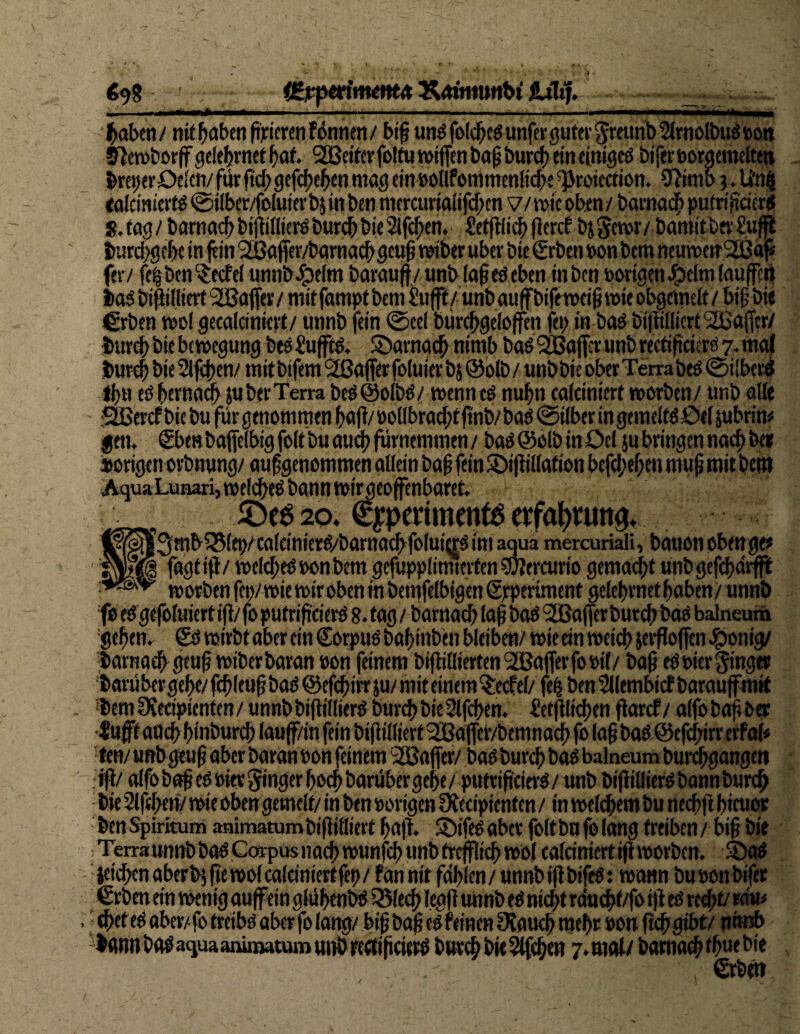 698 Experimenta Raimundi Lulij.
haben / nit haben fixieren können / biß uns solches unser guter Freund Arnoldus von
Newdorff gelehrnet hat. Weiter soltu wissen daß durch ein einiges diser vorgemelten
dreyer Oelen / für sich geschehen mag ein vollkommenliche Proiection. Nimb 3. Unß
calcinierts Silber / soluier dz in den mercurialischen ▽ / wie oben / darnach putrificiers
8. tag / darnach distilliers durch die Aschen. Letstlich sterck dz Fewr / damit der Lufft
durchgehe in sein Wasser / darnach geuß wider uber die Erden von dem neuwen Was-
ser / setz den Deckel unnd Helm darauff / und laß es eben in den vorigen Helm lauffen
das distilliert Wasser / mit sampt dem Lufft / und auff dise weiß wie obgemelt / biß die
Erden wol gecalciniert / unnd sein Seel durchgeloffen sey in das distilliert Wasser /
durch die bewegung des Luffts. Darnach nimb das Wasser und rectificiers 7. mal
durch die Aschen / mit disem Wasser soluier dz Gold / und die ober Terra des Silbers
thu es hernach zu der Terra des Golds / wenn es nuhn calciniert worden / und alle
Werck die du für genommen hast / vollbracht sind / das Silber in gemelts Oel zubrin-
gen. Eben dasselbig solt du auch fürnemmen / das Gold in Oel zu bringen nach der
vorigen ordnung / außgenommen allein daß sein Distillation beschehen muß mit dem
Aqua Lunari, welches dann wir geoffenbaret.
Des 20. Experiments erfahrung.
Nimb Bley / calciniers / darnach soluiers im aqua mercuriali, dauon oben ge-
sagt ist / welches von dem gesupplimierten Mercurio gemacht und geschärfft
worden sey / wie wir oben in demselbigen Experiment gelehrnet haben / unnd
so es gesoluiert ist / so putrificiers 8. tag / darnach laß das Wasser durch das balneum
gehen. Es wirdt aber ein Corpus dahinden bleiben / wie ein weich zerflossen Honig /
darnach geuß wider daran von seinem distillierten Wasser so vil / daß es vier Finger
darüber gehe / schleuß das Geschirr zu / mit einem Deckel / setz den Alembick darauff mit
dem Recipienten / unnd distilliers durch die Aschen. Letstlichen starck / also daß der
Lufft auch hindurch lauff / in sein distilliert Wasser / demnach so laß das Geschirr erkal-
ten / und geuß aber daran von seinem Wasser / das durch das balneum durchgangen
ist / also daß es vier Finger hoch darüber gehe / putrificiers / und distilliers dann durch
die Aschen / wie oben gemelt / in den vorigen Recipienten / in welchem du nechst hieuor
den Spiritum animatum distilliert hast. Dises aber solt du so lang treiben / biß die
Terra unnd das Corpus nach wunsch und trefflich wol calciniert ist worden. Das
zeichen aber dz sie wol calciniert sey / kan nit fählen / unnd ist dises: wann du von diser
Erden ein wenig auff ein glühends Blech legst unnd es nicht räucht / so ist es recht / räu-
chet es aber / so treibs aber so lang / biß daß es keinen Rauch mehr von sich gibt / nimb
dann das aqua animatum und rectificiers durch die Aschen 7. mal / darnach thue die
Erden